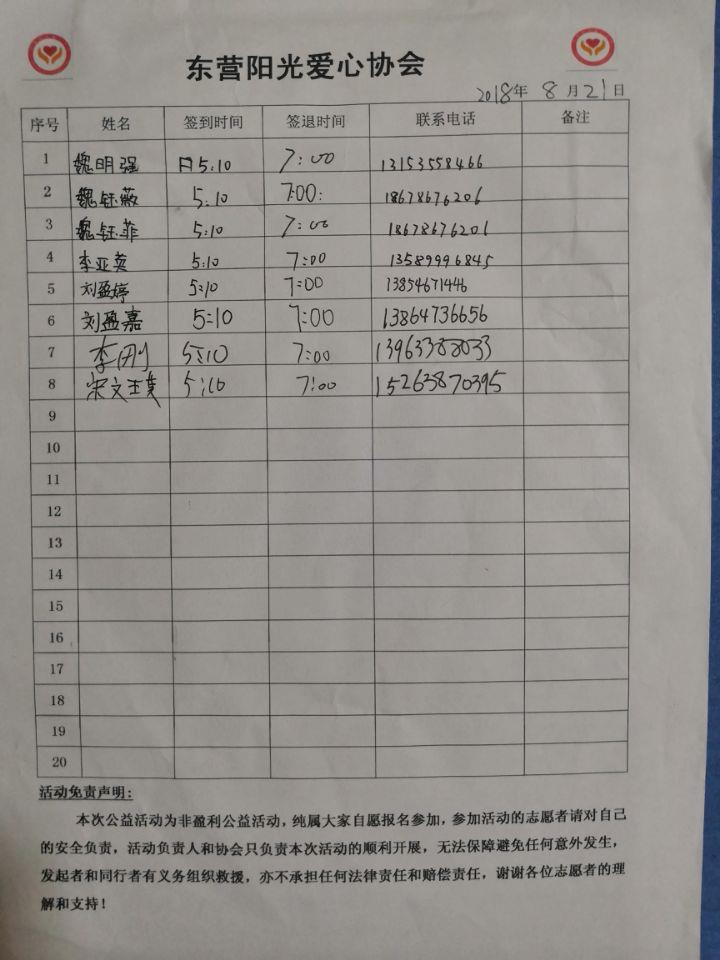 东营阳光爱心协会
2018年 8 月 21 日
序号 姓名 签到时间 签退时间 联系电话 备注
1 魏明强 5:10 7:00 13153558466
2 魏钰薇 5:10 7:00: 18678676206
3 魏钰菲 5:10 7:00 18678676206
4 李亚英 5:10 7:00 13589996845
5 刘盈婷 5:10 7:00 13854671446
6 刘盈嘉 5:10 7:00 13864736656
7 李刚 5:10 7:00 13963383033
8 宋文 5:10 7:00 15263870395
9
10
11
12
13
14
15
16
17
18
19
20
活动免责声明:
本次公益活动为非盈利公益活动，纯属大家自愿报名参加，参加活动的志愿者请对自己
的安全负责，活动负责人和协会只负责本次活动的顺利开展，无法保障避免任何意外发生，
发起者和同行者有义务组织救援，亦不承担任何法律责任和赔偿责任，谢谢各位志愿者的理
解和支持！